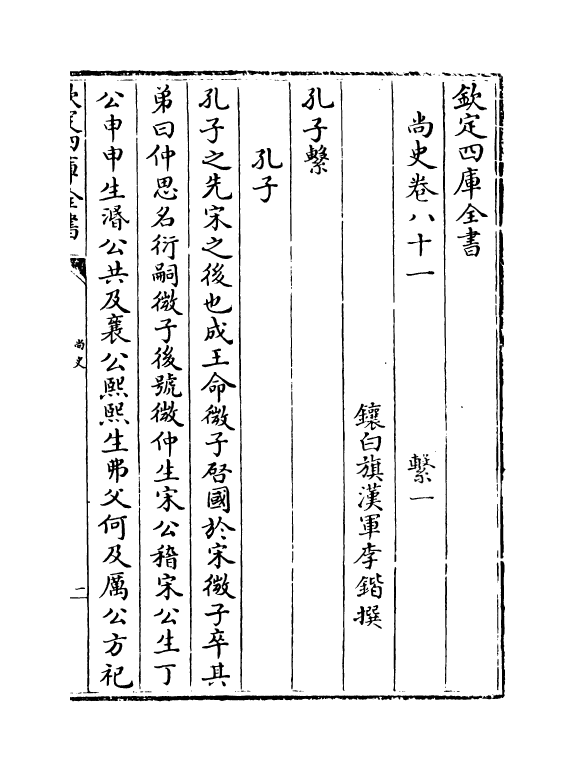 欽定四庫全書
尚史卷八十一 繫一
鑲白旗漢軍李鍇撰
孔子繫
孔子
孔子之先宋之後也成王命微子啓國於宋微子卒其
弟曰仲思名衍嗣微子後號微仲生宋公稽宋公生丁
公申申生湣公共及襄公熙熙生弗父何及厲公方祀
欽定四庫全書
尚史
二